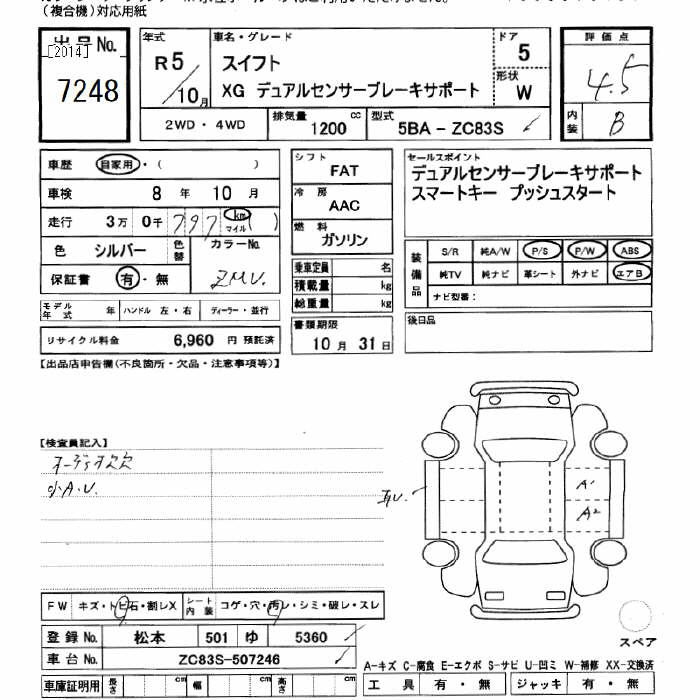 （複合機）対応用紙
出品No.
[2014]
7248
年式
R5/10月
車名・グレード
スイフト
XG デュアルセンサーブレーキサポート
ドア
5
形状
W
2WD・4WD
排気量 1200 cc
型式 5BA-ZC83S
評価点
4.5
内装 B
車歴 自家用・（ ）
車検 8年 10月
走行 3万 0千 797 km マイル ( )
色 シルバー 色替 カラーNo. ZMV.
保証書 有・無
モデル年式 年 ハンドル 左・右 ディーラー・並行
リサイクル料金 6,960 円 預託済
シフト
FAT
冷房
AAC
燃料
ガソリン
乗車定員 名
積載量 kg
総重量 kg
書類期限
10月 31日
セールスポイント
デュアルセンサーブレーキサポート
スマートキー プッシュスタート
装備品
S/R 純A/W P/S P/W ABS
純TV 純ナビ 革シート 外ナビ エアB
ナビ型番：
後日品
【出品店申告欄（不良箇所・欠品・注意事項等）】
【検査員記入】
オーディオ欠欠
小A.U.
A¹
A²
FW キズ・トビ石・割レX
シート内装 コゲ・穴・汚レ・シミ・破レ・スレ
登録No. 松本 501 ゆ 5360
車台No. ZC83S-507246
車庫証明用 長さ cm 幅 cm 高さ cm
スペア
A-キズ C-腐食 E-エクボ S-サビ U-凹ミ W-補修 XX-交換済
工具 有・無 ジャッキ 有・無